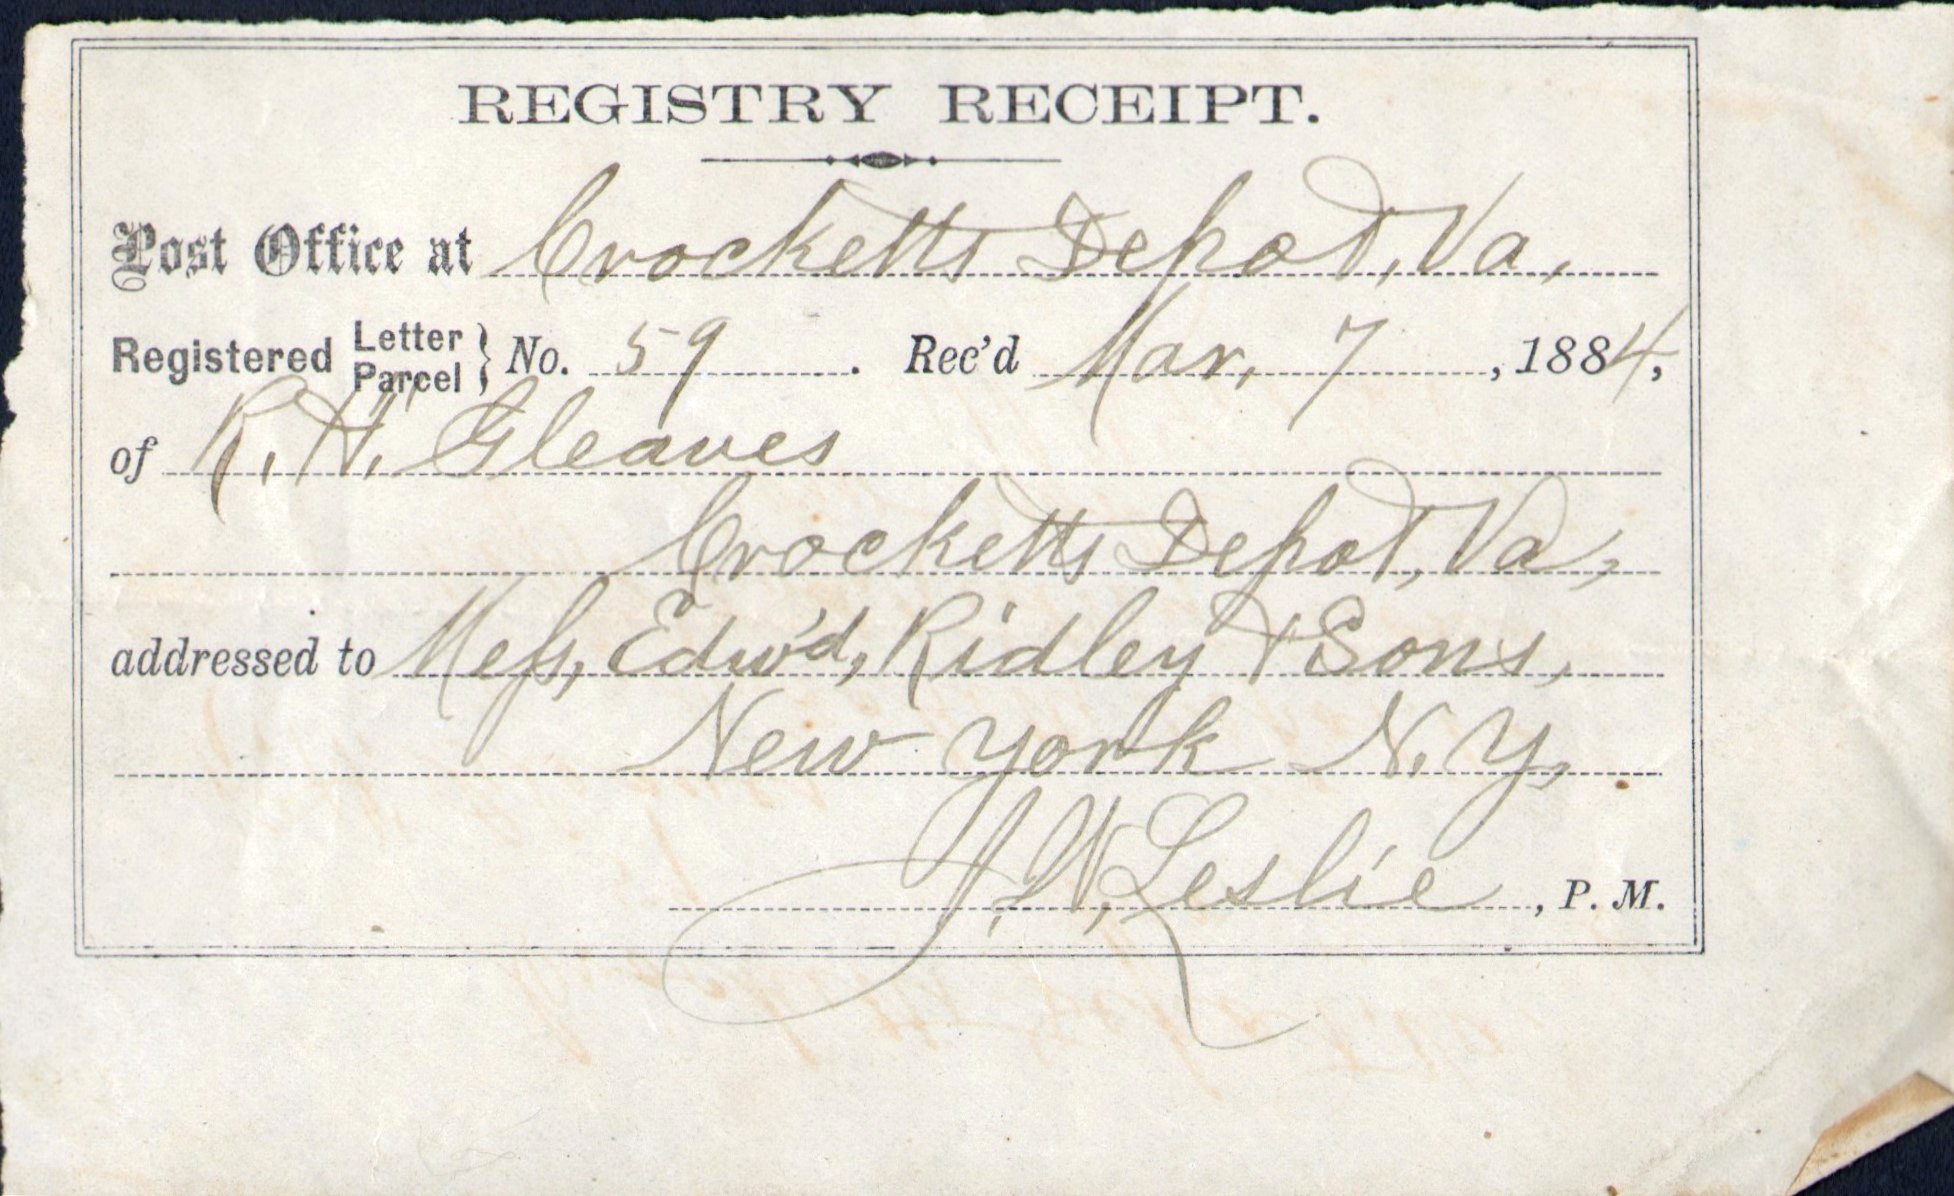 REGISTRY RECEIPT.
Post Office at Crocketts Depot, Va,
Registered Letter Parcel } No. 59. Rec'd Mar, 7, 1884,
of R. H. Gleaves
Crocketts Depot, Va,
addressed to Mess, Edw'd, Ridley & Sons,
New York N. Y,
J. W. Leslie, P. M.